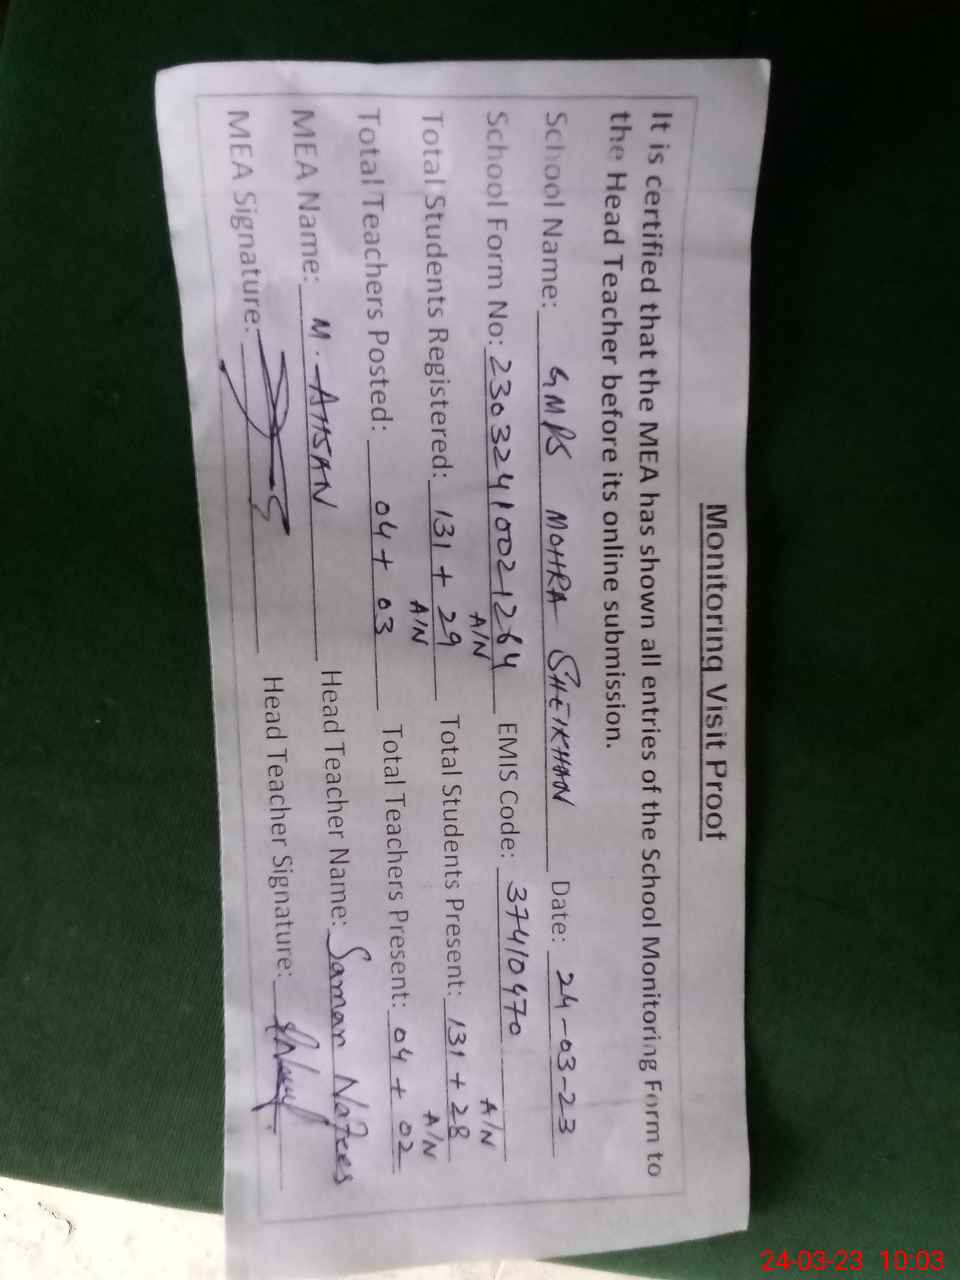 Monitoring Visit Proof
It is certified that the MEA has shown all entries of the School Monitoring Form to
the Head Teacher before its online submission.
School Name: GMPS MOHRA SHEIKHAN Date: 24-03-23
School Form No: 23032410021264 EMIS Code: 37410470
A/N A/N
Total Students Registered: 131 + 29 Total Students Present: 131 + 28
A/N A/N
Total Teachers Posted: 04 + 03 Total Teachers Present: 04 + 02
MEA Name: M. AHSAN Head Teacher Name: Saman Nafees
MEA Signature: Head Teacher Signature:
24-03-23 10:03